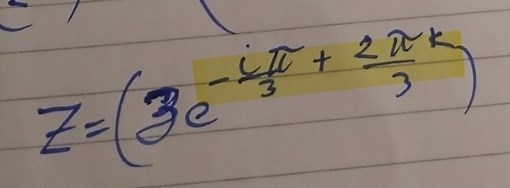 Z=(3e^{-\frac{iπ}{3}+\frac{2πk}{3}})